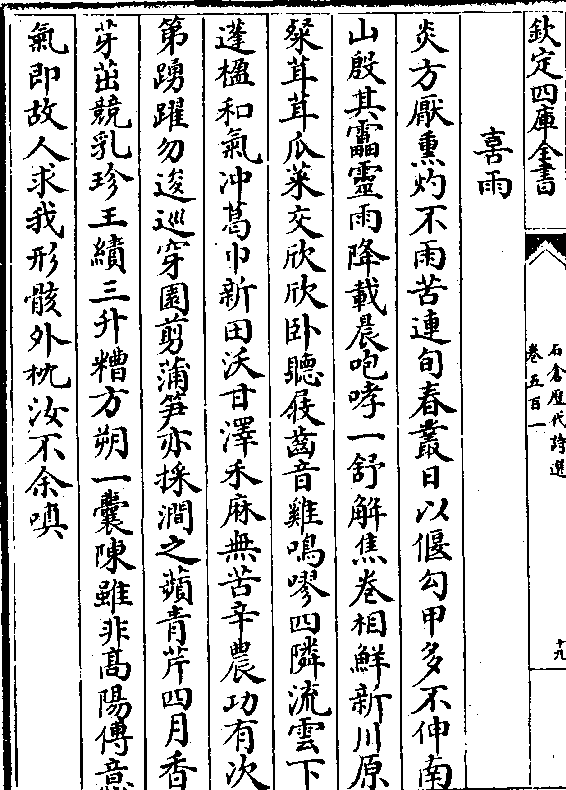 欽定四庫全書
石倉歷代詩選
卷五百一
十九
喜雨
炎方厭熏灼不雨苦連旬春叢日以偃勾甲多不伸南
山殷其靁靈雨降載晨咆哮一舒解焦卷相鮮新川原
粲茸茸瓜菜交欣欣卧聽屐齒音雞鳴嘐四隣流雲下
蓬楹和氣沖葛巾新田沃甘澤禾麻無苦辛農功有次
第踴躍勿逡巡穿園剪蒲笋亦採澗之蘋青芹四月香
芽茁競乳珍王績三升糟方朔一囊陳雖非高陽傳意
氣即故人求我形骸外枕汝不余嗔